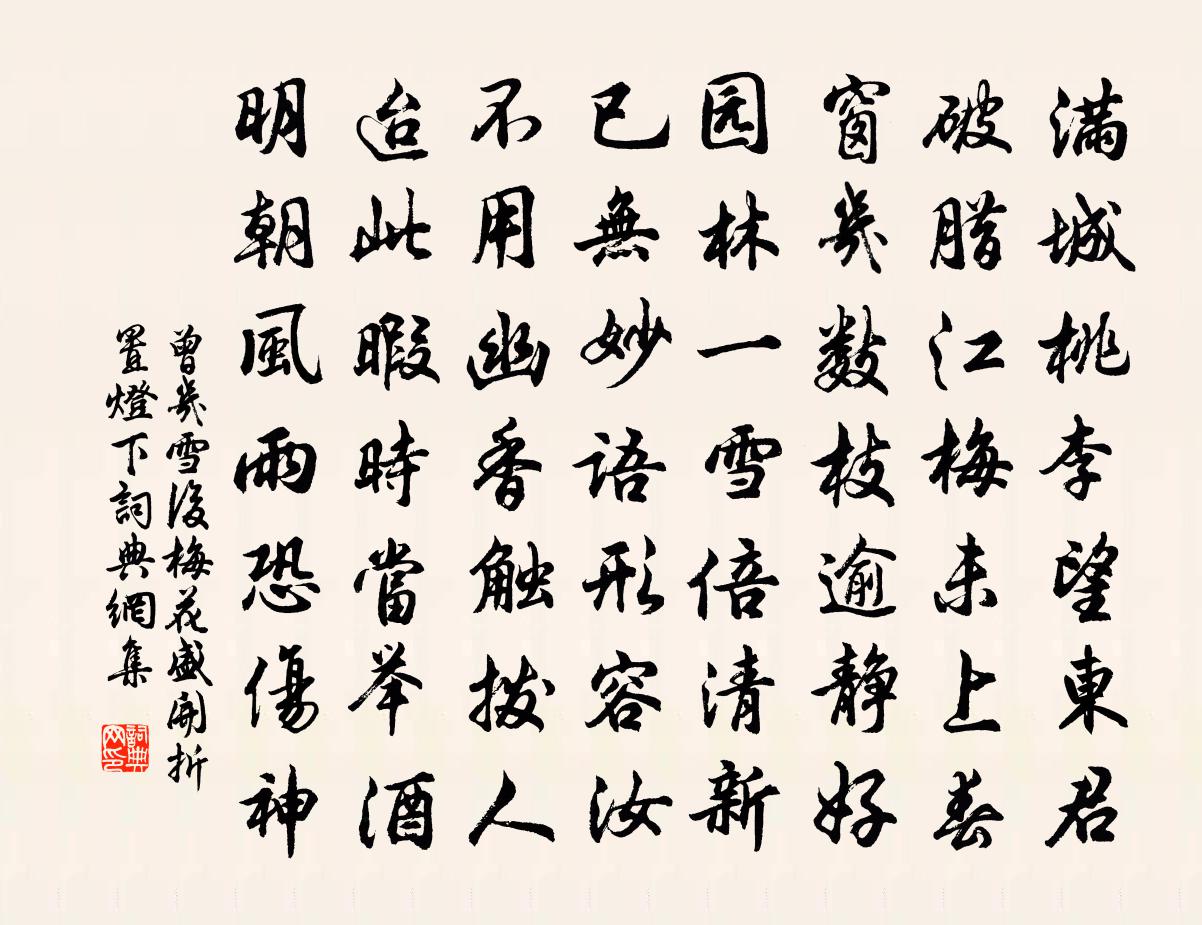 滿城桃李望東君
破腊江梅未上春
窗幾數枝逾静好
园林一雪倍清新
已無妙語形容汝
不用幽香触撥人
迨此暇時當举酒
明朝風雨恐傷神
曾幾雪後梅花盛開折
置燈下詞典網集
詞典网印